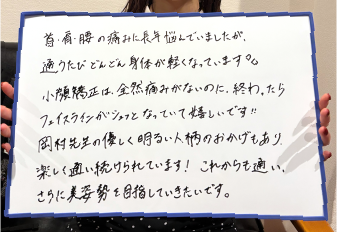 首・肩・腰の痛みに長年悩んでいましたが、
通うたびどんどん身体が軽くなっています。
小顔矯正は、全然痛みがないのに、終わったら
フェイスラインがシュッとなっていて嬉しいです!!
岡村先生の優しく明るい人柄のおかげもあり、
楽しく通い続けられています! これからも通い、
さらに美姿勢を目指していきたいです。